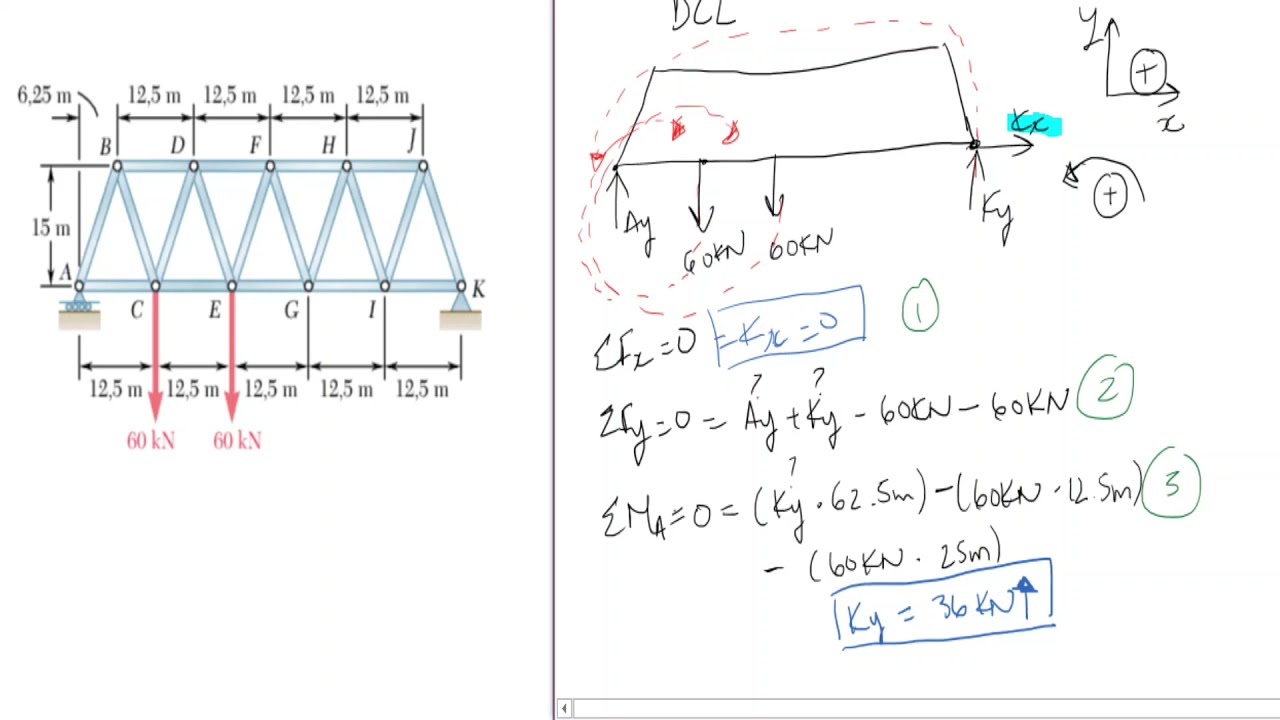 6,25 m
12,5 m 12,5 m 12,5 m 12,5 m
B D F H J
15 m
A K
C E G I
12,5 m 12,5 m 12,5 m 12,5 m 12,5 m
60 kN 60 kN
DCL
y
+
x
Kx
+
Ay
60KN 60KN
Ky
ΣFx=0 =Kx=0 1
? ?
ΣFy=0 = Ay + Ky - 60KN - 60KN 2
?
ΣMA=0 = (Ky · 62.5m) - (60KN · 12.5m) 3
- (60KN · 25m)
Ky = 36KN↑